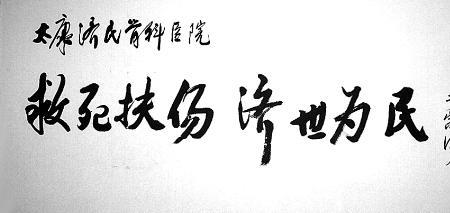 太康济民骨科医院
救死扶伤 济世为民